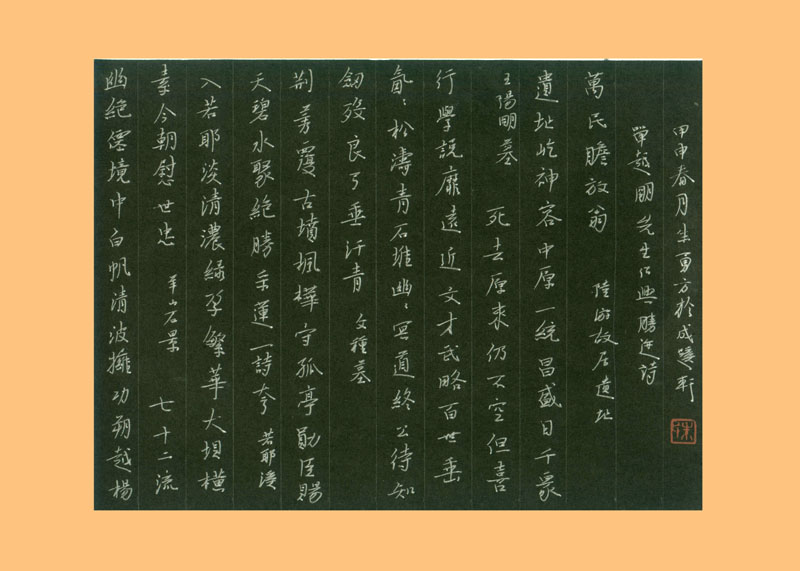 幽絕僊境中白帆清波擁功朔越楊
素今朝慰世忠 羊山石景 七十二流
入若耶淡清濃綠孕繁華大坝橫
天碧水聚絕勝 運一詩夸 若耶溪
荆芳覆古墳楓樺守孤亭勛臣賜
劒歿良弓垂汗青 文種墓
氤氤松濤青石堆幽幽冥道終公待知
行學說靡遠近文才武略百世垂
王陽明墓 死去原來仍不空但喜
遺址屹神容中原一統昌盛日千家
萬民瞻放翁 陸游故居遺址
單越明先生紹興勝迹詩
甲申春月朱勇方於成蹊軒
朱